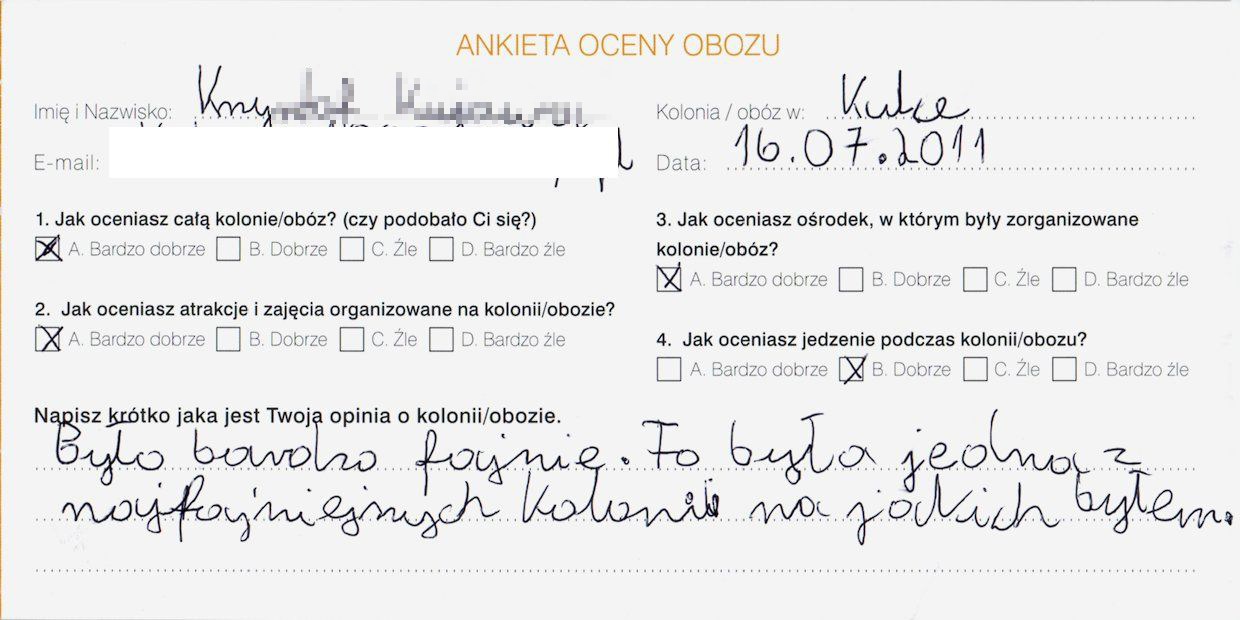 ANKIETA OCENY OBOZU
Imię i Nazwisko:
Kolonia / obóz w: Kulce
E-mail:
Data: 16.07.2011
1. Jak oceniasz całą kolonie/obóz? (czy podobało Ci się?)
A. Bardzo dobrze B. Dobrze C. Źle D. Bardzo źle
2. Jak oceniasz atrakcje i zajęcia organizowane na kolonii/obozie?
A. Bardzo dobrze B. Dobrze C. Źle D. Bardzo źle
3. Jak oceniasz ośrodek, w którym były zorganizowane
kolonie/obóz?
A. Bardzo dobrze B. Dobrze C. Źle D. Bardzo źle
4. Jak oceniasz jedzenie podczas kolonii/obozu?
A. Bardzo dobrze B. Dobrze C. Źle D. Bardzo źle
Napisz krótko jaka jest Twoja opinia o kolonii/obozie.
Było bardzo fajnie. To była jedna z
najfajniejszych kolonii na jakich byłem.